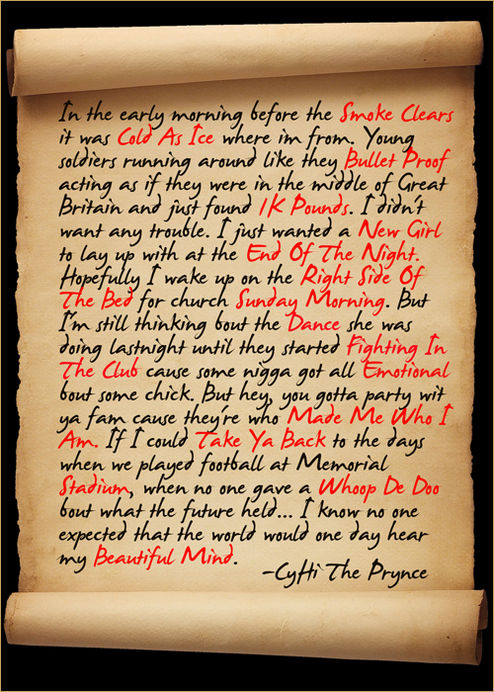 In the early morning before the Smoke Clears
it was Cold As Ice where im from. Young
soldiers running around like they Bullet Proof
acting as if they were in the middle of Great
Britain and just found 1K Pounds. I didn't
want any trouble. I just wanted a New Girl
to lay up with at the End Of The Night.
Hopefully I wake up on the Right Side Of
The Bed for church Sunday Morning. But
I'm still thinking bout the Dance she was
doing lastnight until they started Fighting In
The Club cause some nigga got all Emotional
bout some chick. But hey, you gotta party wit
ya fam cause they're who Made Me Who I
Am. If I could Take Ya Back to the days
when we played football at Memorial
Stadium, when no one gave a Whoop De Doo
bout what the future held... I know no one
expected that the world would one day hear
my Beautiful Mind.
-CyHi The Prynce